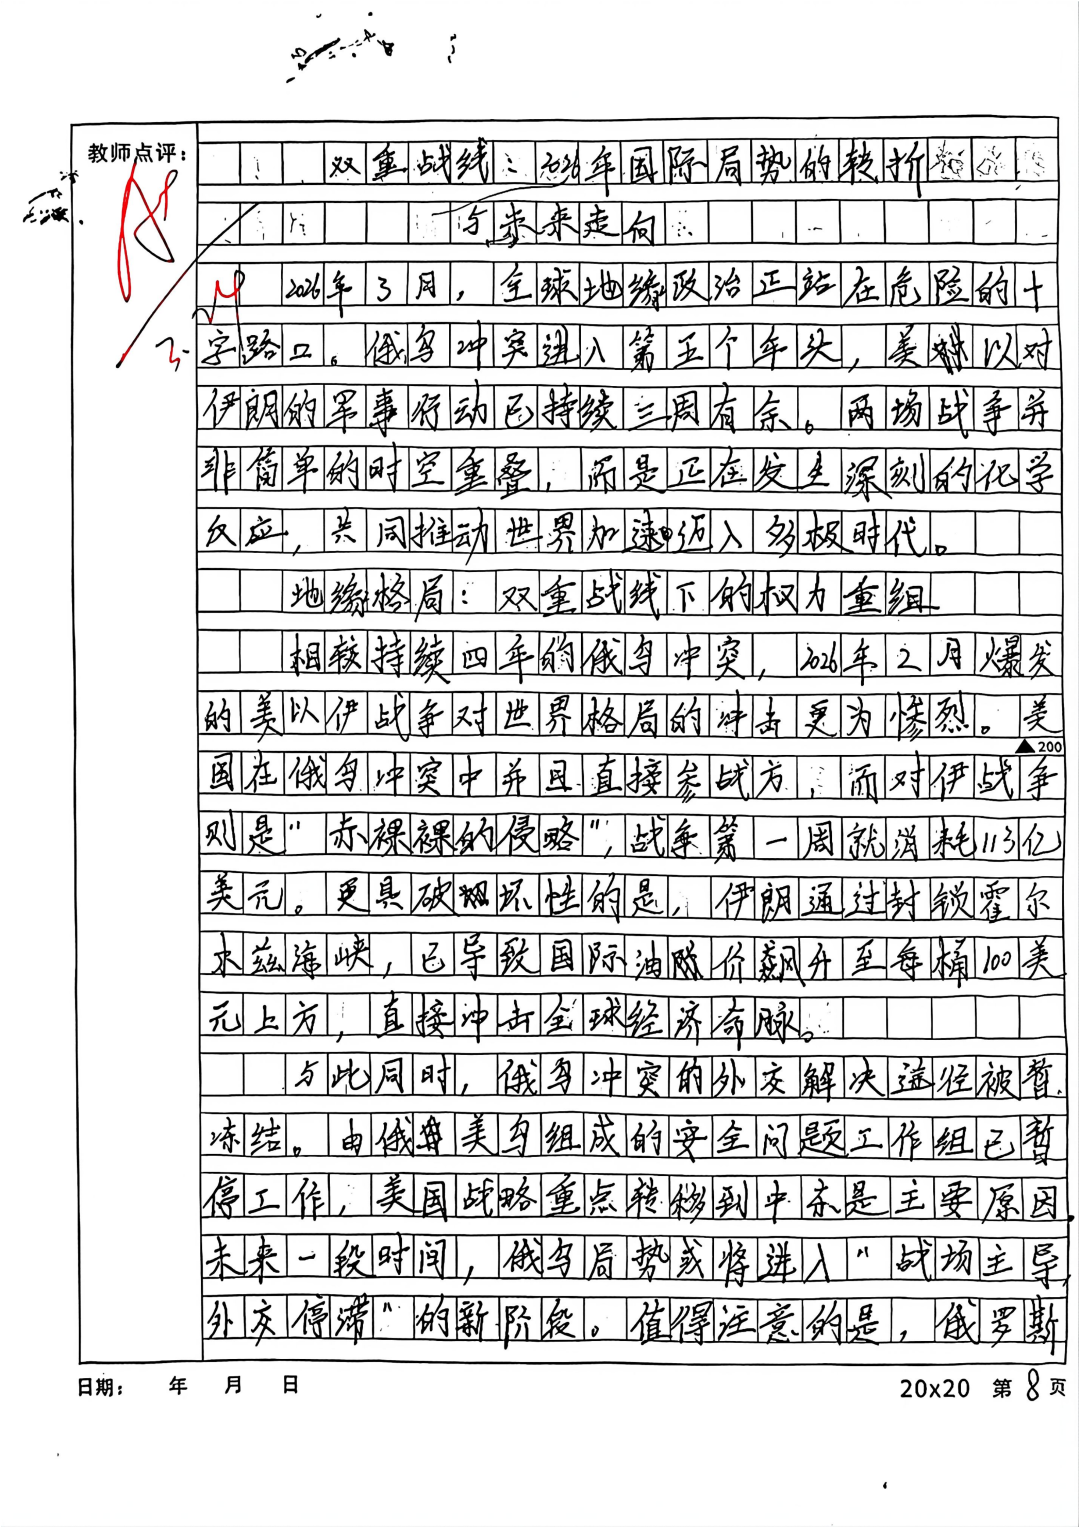 教师点评:
A+
3.24
双重战线：2026年国际局势的转折
与未来走向
2026年3月，全球地缘政治正站在危险的十
字路口。俄乌冲突进入第五个年头，美以对
伊朗的军事行动已持续三周有余。两场战争并
非简单的时空重叠，而是正在发生深刻的化学
反应，共同推动世界加速迈入多极时代。
地缘格局：双重战线下的权力重组
相较持续四年的俄乌冲突，2026年2月爆发
的美以伊战争对世界格局的冲击更为惨烈。美
▲200
国在俄乌冲突中并且直接参战方，而对伊战争
则是“赤裸裸的侵略”，战争第一周就消耗113亿
美元。更具破坏性的是，伊朗通过封锁霍尔
木兹海峡，已导致国际油价飙升至每桶100美
元上方，直接冲击全球经济命脉。
与此同时，俄乌冲突的外交解决途径被暂
冻结。由俄美乌组成的安全问题工作组已暂
停工作，美国战略重点转移到中东是主要原因，
未来一段时间，俄乌局势或将进入“战场主导，
外交停滞”的新阶段。值得注意的是，俄罗斯
日期: 年 月 日
20x20 第8页